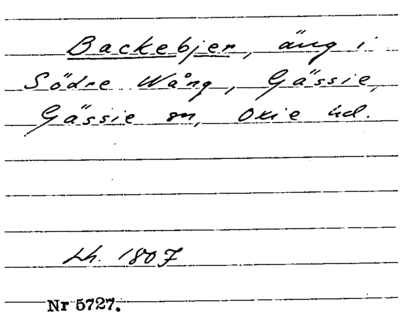 Backebjer, äng i
Södre Wång, Gässie,
Gässie sn, Oxie hd.
Lh. 1807
Nr 5727.